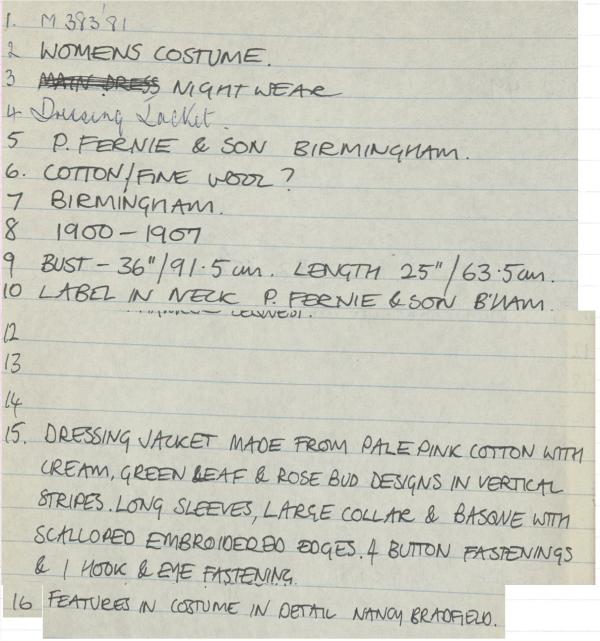 1. M 383'81
2 WOMENS COSTUME.
3 MAIN DRESS NIGHTWEAR
4 Dressing Jacket.
5 P. FERNIE & SON BIRMINGHAM.
6. COTTON/FINE WOOL?
7 BIRMINGHAM.
8 1900-1907
9 BUST - 36"/91.5cm. LENGTH 25"/63.5cm.
10 LABEL IN NECK P. FERNIE & SON B'HAM.
12
13
14
15. DRESSING JACKET MADE FROM PALE PINK COTTON WITH
CREAM, GREEN LEAF & ROSE BUD DESIGNS IN VERTICAL
STRIPES. LONG SLEEVES, LARGE COLLAR & BASQUE WITH
SCALLOPED EMBROIDERED EDGES. 4 BUTTON FASTENINGS
& 1 HOOK & EYE FASTENING.
16 FEATURES IN COSTUME IN DETAIL NANCY BRADFIELD.